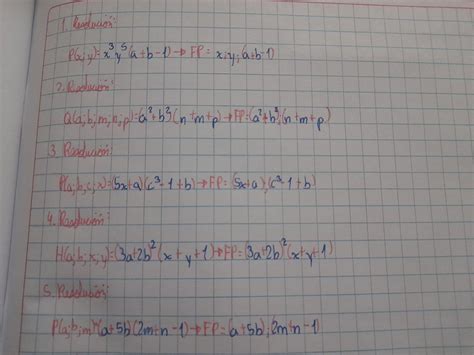 1. Resolución:
P(x,y)=x³y⁵(a+b-1)→FP= x;y;(a+b-1)
2. Resolución:
Q(a;b;m;n;p)=(a²+b²)(n+m+p)→FP=(a²+b²);(n+m+p)
3. Resolución:
P(a;b;c;x)=(5x+a)(c³-1+b)→FP=(5x+a);(c³-1+b)
4. Resolución:
H(a;b;x;y)=(3a+2b)²(x+y+1)→FP=(3a+2b)²(x+y+1)
5. Resolución:
P(a;b;m)=(a+5b)(2m+n-1)→FP=(a+5b);2m+n-1)